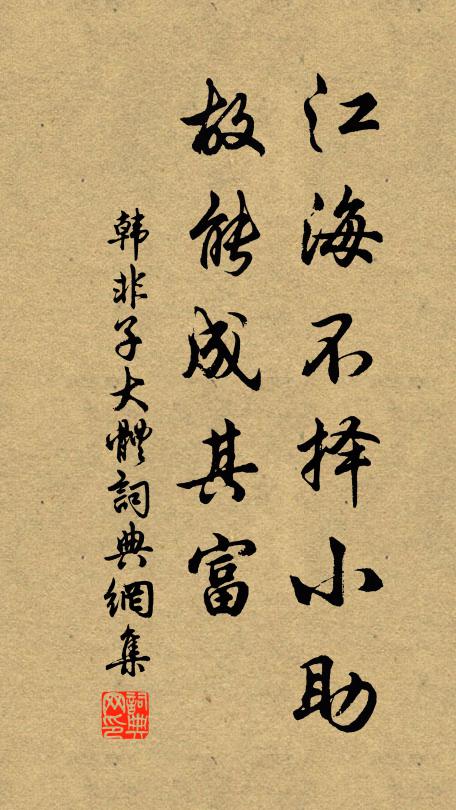 江海不择小助
故能成其富
韩非子大體詞典網集
詞典网印